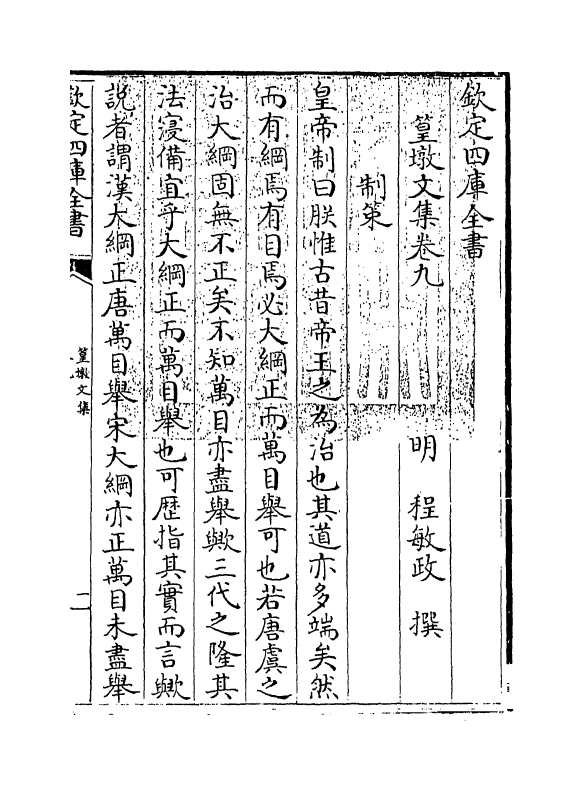 欽定四庫全書
篁墩文集卷九
明 程敏政 撰
制策
皇帝制曰朕惟古昔帝王之為治也其道亦多端矣然
而有綱焉有目焉必大綱正而萬目舉可也若唐虞之
治大綱固無不正矣不知萬目亦盡舉歟三代之隆其
法寖備宜乎大綱正而萬目舉也可歴指其實而言歟
說者謂漢大綱正唐萬目舉宋大綱亦正萬目未盡舉
欽定四庫全書
篁墩文集